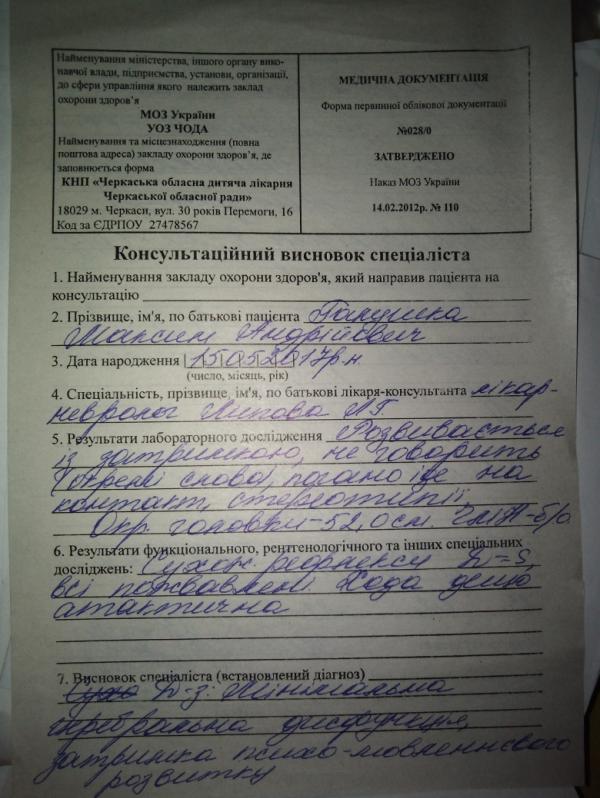 Найменування міністерства, іншого органу вико-
навчої влади, підприємства, установи, організації,
до сфери управління якого належить заклад
охорони здоров'я
МОЗ України
УОЗ ЧОДА
Найменування та місцезнаходження (повна
поштова адреса) закладу охорони здоров'я, де
заповнюється форма
КНП «Черкаська обласна дитяча лікарня
Черкаської обласної ради»
18029 м. Черкаси, вул. 30 років Перемоги, 16
Код за ЄДРПОУ 27478567
МЕДИЧНА ДОКУМЕНТАЦІЯ
Форма первинної облікової документації
№028/0
ЗАТВЕРДЖЕНО
Наказ МОЗ України
14.02.2012р. № 110
Консультаційний висновок спеціаліста
1. Найменування закладу охорони здоров'я, який направив пацієнта на
консультацію
2. Прізвище, ім'я, по батькові пацієнта Галушка
Максим Андрійович
3. Дата народження 15052017р.н.
(число, місяць, рік)
4. Спеціальність, прізвище, ім'я, по батькові лікаря-консультанта лікар-
невролог Липова
5. Результати лабораторного дослідження Розвивається
із затримкою, не говорить
слова, погано іде на
контакт, стереотипії
Окр. головки-52,0см. ЧМН-б/о
6. Результати функціонального, рентгенологічного та інших спеціальних
досліджень: Сухож. рефлекси D=S,
всі пожвавлені. Хода дещо
атактична
7. Висновок спеціаліста (встановлений діагноз)
D-з: Мінімальна
церебральна дисфункція,
затримка психо-мовленнєвого
розвитку